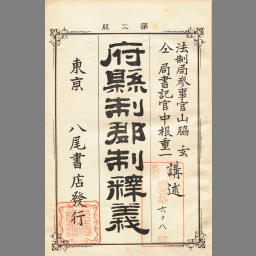 第二版
法制局參事官山脇玄
仝局書記官中根重一
講述
府縣制郡制釋義
東京
八尾書店發行